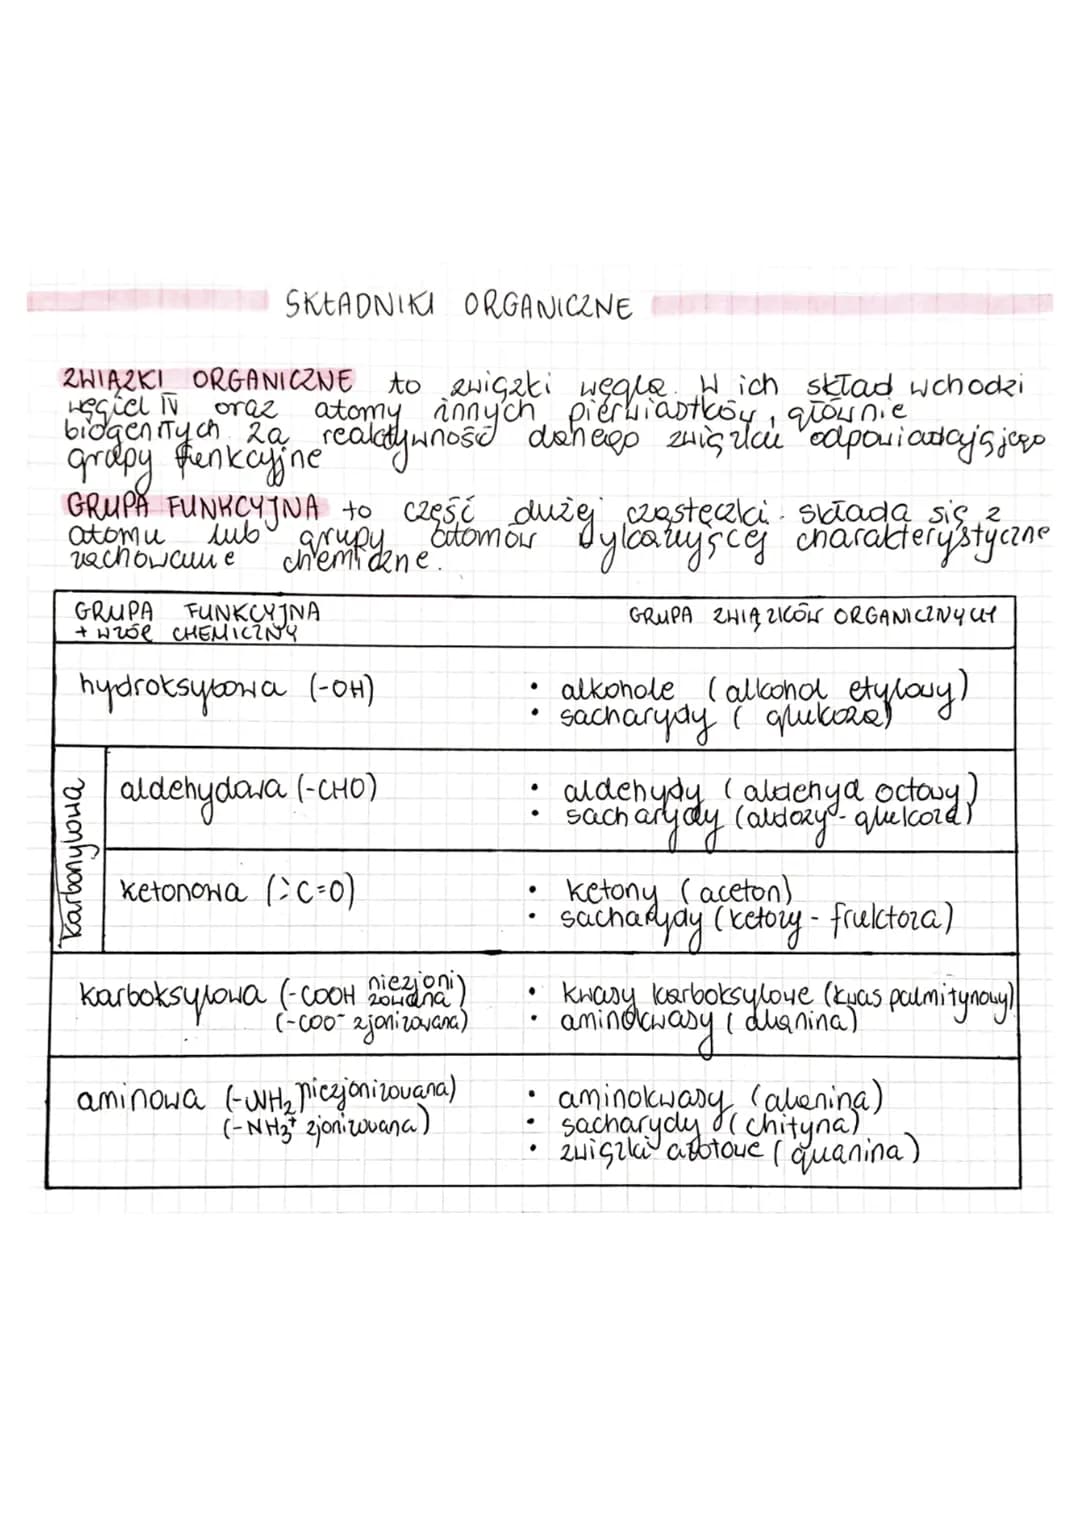 SKŁADNIKI ORGANICZNE
ZWIĄZKI ORGANICZNE to związki węgla. W ich skład wchodzi
węgiel IV oraz atomy innych pierwiastków, głównie
biogennych. Za reaktywność danego związku odpowiadają jego
grupy funkcyjne
GRUPA FUNKCYJNA to część dużej cząsteczki. składa się z
atomu lub grupy atomów wykazującej charakterystyczne
zachowanie chemiczne.
GRUPA FUNKCYJNA GRUPA ZWIĄZKÓW ORGANICZNYCH
+ WZÓR CHEMICZNY
hydroksylowa (-OH) • alkohole (alkohol etylowy)
• sacharydy (glukoza)
karbonylowa
aldehydowa (-CHO) • aldehydy (aldehyd octowy)
• sacharydy (aldozy - glukoza)
ketonowa (>C=O) • ketony (aceton)
• sacharydy (ketozy - fruktoza)
karboksylowa (-COOH niezjonizowana) • kwasy karboksylowe (kwas palmitynowy)
(-COO⁻ zjonizowana) • aminokwasy (alanina)
aminowa (-NH₂ niezjonizowana) • aminokwasy (alanina)
(-NH₃⁺ zjonizowana) • sacharydy (chityna)
• związki azotowe (guanina)